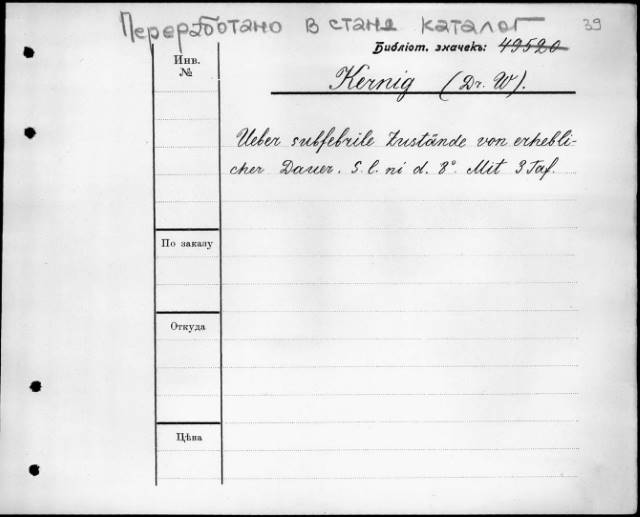 Переработано в станд каталог
39
Библіот. значекъ: 49520
Инв. №
Kernig (Dr. W).
Ueber subfebrile Zustände von erhebli-
cher Dauer. S. l. ni d. 8°. Mit 3 Taf.
По заказу
Откуда
Цѣна